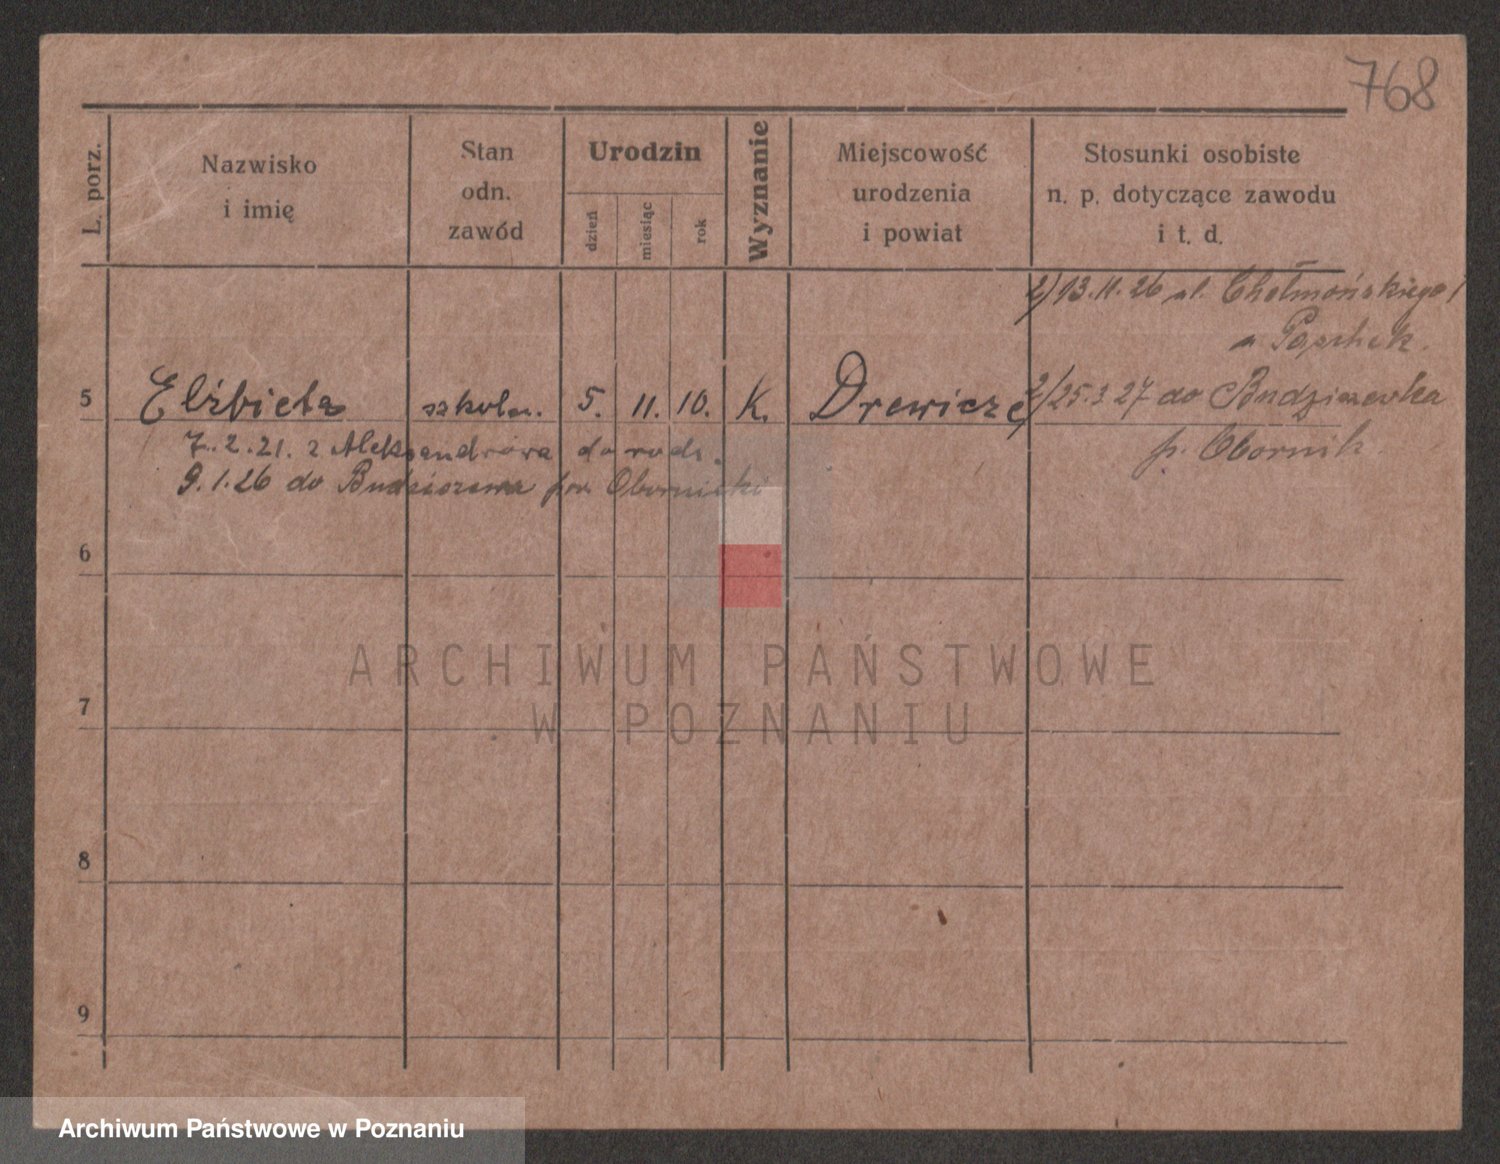 768
L. porz.
Nazwisko
i imię
Stan
odn.
zawód
Urodzin
dzień
miesiąc
rok
Wyznanie
Miejscowość
urodzenia
i powiat
Stosunki osobiste
n. p. dotyczące zawodu
i t. d.
2/13.11.26 ul. Chełmońskiego
5 Elżbieta szkoln. 5. 11. 10. K. Drewicze 2/25.3.27 do Budziszewka
p. Obornik
7.2.21. z Aleksandrowa do rodz.
9.1.26 do Budziszewa pow. Obornicki
6
7
8
9
ARCHIWUM PAŃSTWOWE
W POZNANIU
Archiwum Państwowe w Poznaniu